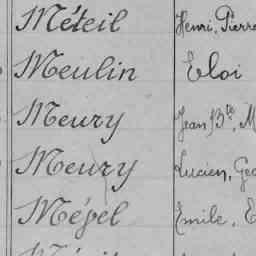 Méteil Henri, Pierre
Meulin Eloi
Meury Jean Bte, M
Meury Lucien, Geo
Mégel Emile, E